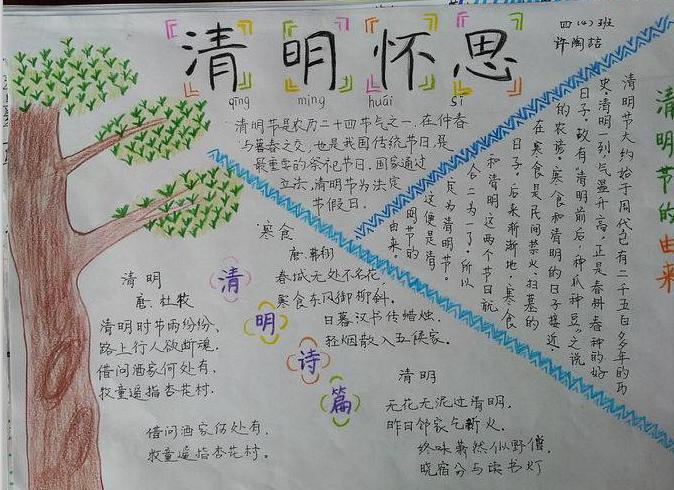 清明怀思
qīng míng huái sī
四(4)班
许陶喆
清明节是农历二十四节气之一.在仲春
与暮春之交,也是我国传统节日,是
最重要的祭祀节日.国家通过
立法,清明节为法定
节假日.
清明节的由来
清明节大约始于周代已有二千五百多年的历
史。清明一到,气温升高,正是春耕春种的好
日子,故有"清明前后,种瓜种豆。"之说
的农谚。寒食和清明的日子接近,
在寒食是民间禁火、扫墓的
日子,后来渐渐地,寒食
和清明这两个节日就
合二为一了。所以
为清明节。
这便是清
明节的
由来。
清明诗篇
清明
唐.杜牧
清明时节雨纷纷,
路上行人欲断魂,
借问酒家何处有,
牧童遥指杏花村.
借问酒家何处有.
牧童遥指杏花村。
寒食
唐.韩翃
春城无处不名花,
寒食东风御柳斜.
日暮汉书传蜡烛.
轻烟散入五候家.
清明
无花无泥过清明.
昨日邻家乞新火.
然似野僧.
晓窗分与读书灯